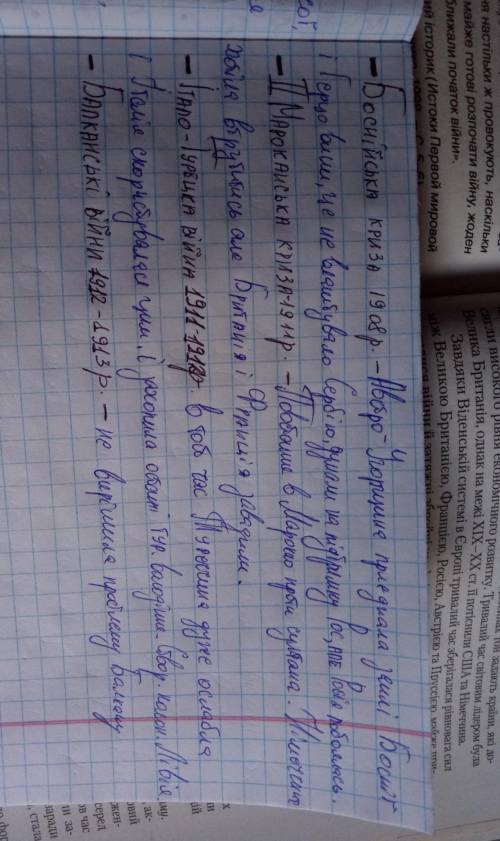 - Боснійська криза 1908р. - Австро-Угорщина приєднала землі Боснії
і Герцоговини, це не влаштувало Сербію, думали на підтримку Рос, але Росія побоялась.
- II Марокканська криза-1911р. - Повстання в Марокко проти султана. Німеччина
хотіла втрутитись але Британія і Франція завадили.
- Італо-Турецка війна 1911-1912р. в той час Туреччина дуже ослабла
і Італія скористувалася цим, і захопила області Тур. володіння. Твор. колон. Лівія
- Балканські війни 1912-1913р. - не вирішила проблему Балкану
ня настільки ж провокують, наскільки
майже готові розпочати війну, жоден
ближали початок війни».
ий історик (Истоки Первой мировой
сягли високого рівня економічного розвитку. Тривалий час світовим лідером була
Велика Британія, однак на межі XIX–XX ст. її потіснили США та Німеччина.
Завдяки Віденській системі в Європі тривалий час зберігалася рівновага сил
між Великою Британією, Францією, Росією, Австрією та Пруссією,